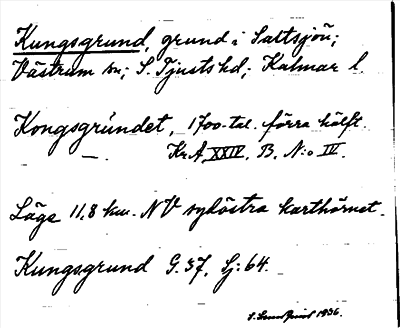 Kungsgrund, grund i Saltsjön;
Västrum sn; S. Tjusts hd; Kalmar l.
Kongsgrúndet, 1700-tal. förra hälft.
— Kr.A. XXIV. B. N:o IV.
Läge 11,8 km. NV sydöstra karthörnet.
Kungsgrund G. 37, Sj: 64.
1936.